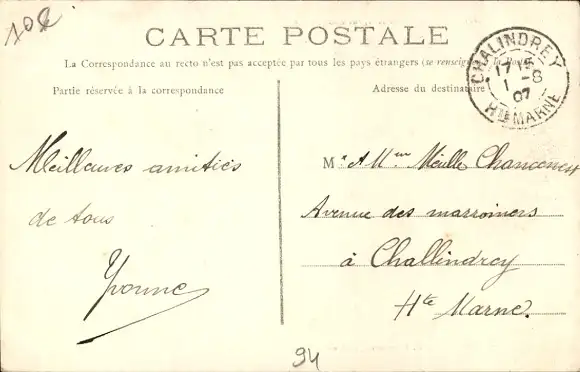 102
CARTE POSTALE
La Correspondance au recto n'est pas acceptée par tous les pays étrangers (se renseigner à la Poste)
Partie réservée à la correspondance
Adresse du destinataire
CHALINDREY
17 15
1 -8
07
HTE MARNE
Meilleures amitiés
de tous
Yvonne
Mr & Mme Chancenest
Avenue des marroniers
à Challindrey
Hte Marne.
94